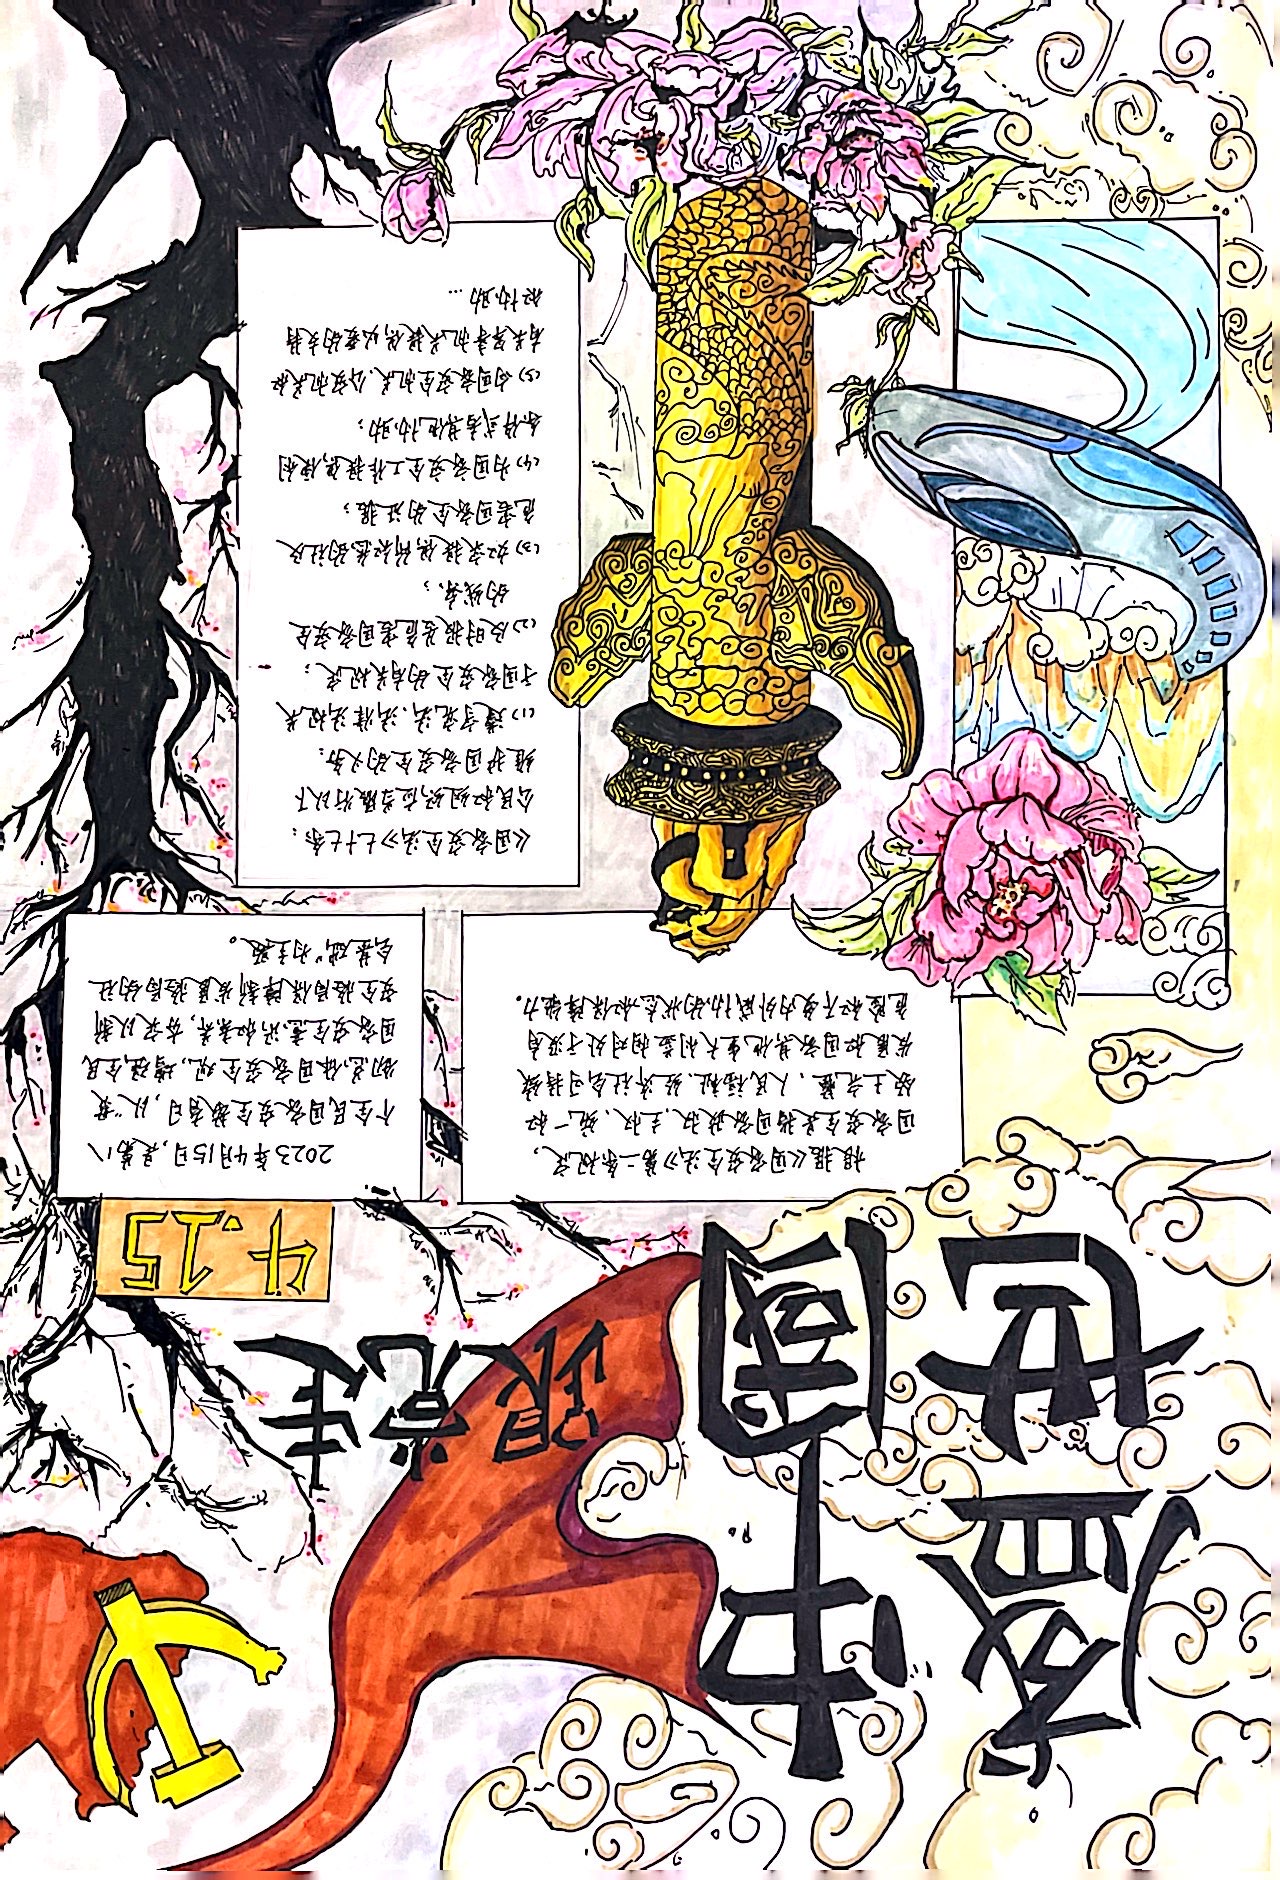 盛世
中國
跟党走
4.15
根据《国家安全法》第二条规定,
国家安全是指国家政权、主权、统一和
领土完整、人民福祉、经济社会可持续
发展和国家其他重大利益相对处于没有
危险和不受内外威胁的状态和保障能力.
2023年4月15日,是第八
个全民国家安全教育日,以“贯
彻总体国家安全观,增强全民
国家安全意识和素养,夯实以新
安全格局保障新发展格局的社
会基础”为主题。
《国家安全法》七十七条:
公民和组织,应当履行以下
维护国家安全的义务:
(1)遵守宪法、法律法规关
于国家安全的有关规定;
(2)及时报告危害国家安全
的线索;
(3)如实提供所知悉的涉及
危害国家全的证据;
(4)为国家安全工作提供便利
条件或者其他协助;
(5)向国家安全机关、公安机关和
有关军事机关提供必要的支持
和协助…